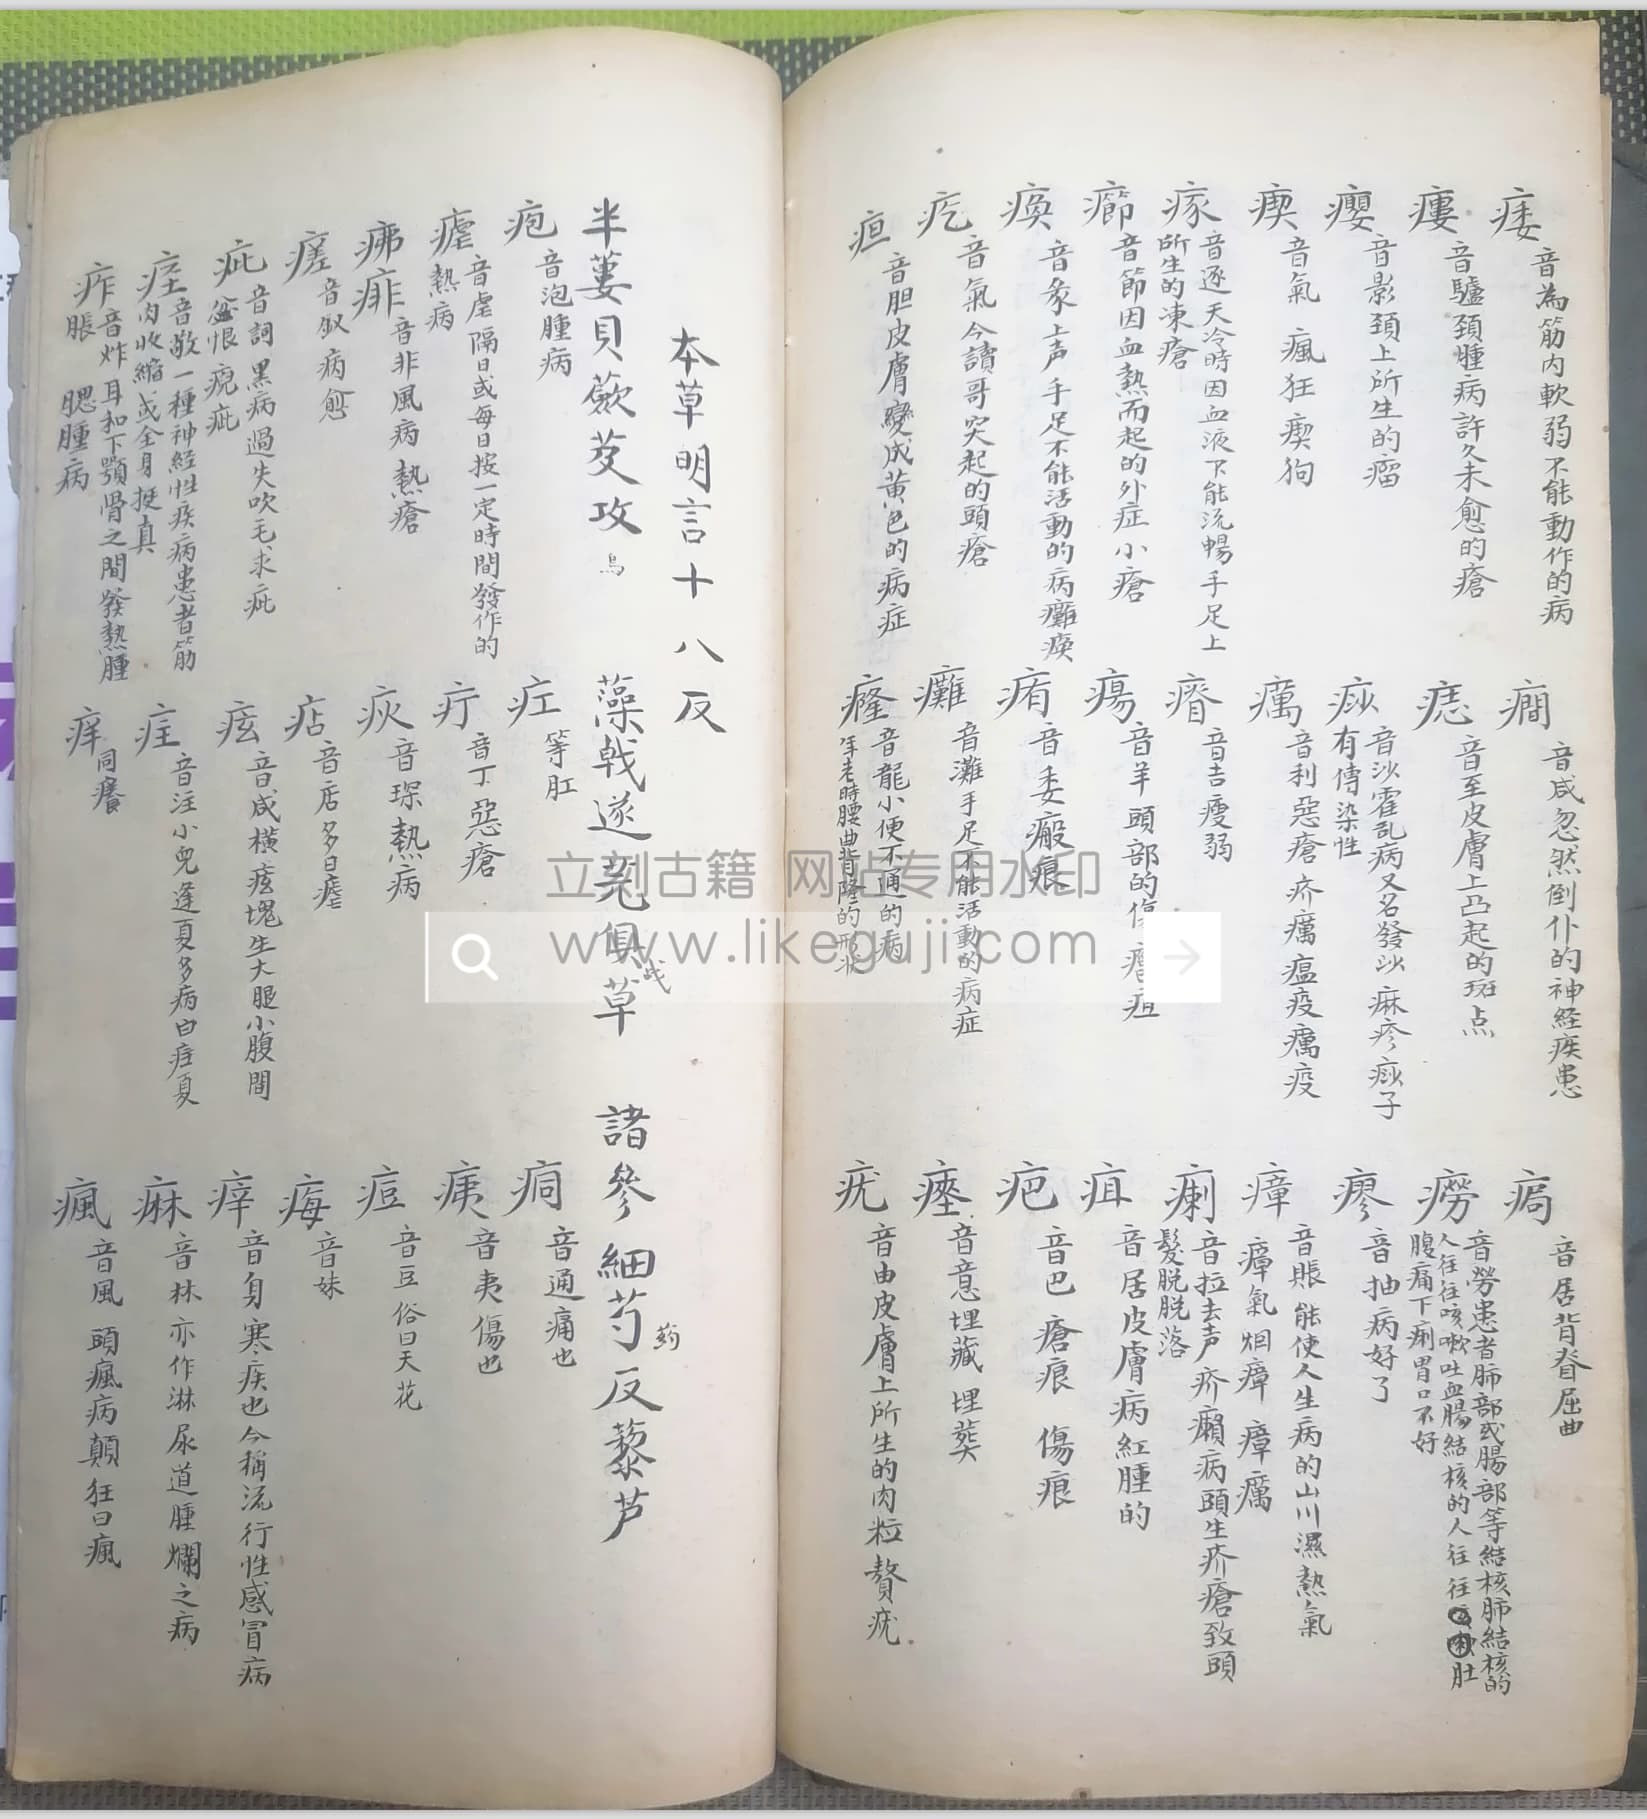 痿 音為筋内軟弱不能動作的病
瘻 音驢頚腫病許久未愈的瘡
癭 音影頚上所生的瘤
瘈 音氣 瘋狂 瘈狗
瘃 音逐天冷時因血液不能流暢手足上
所生的凍瘡
癤 音節因血熱而起的外症小瘡
瘓 音象上声 手足不能活動的病癱瘓
疙 音氣今讀哥突起的頭瘡
疸 音胆皮膚變成黄色的病症
癎 音咸忽然倒仆的神経疾患
痣 音至皮膚上凸起的斑点
痧 音沙霍乱病又名發沙 麻疹痧子
有傳染性
癘 音利惡瘡 疥癘瘟疫癘疫
瘠 音吉瘦弱
瘍 音羊頭部的傷
痏 音委瘢痕
癱 音灘手足不能活動的病症
癃 音龍小便不通的病
年老時腰曲背隆的形状
痀 音居背脊屈曲
癆 音勞患者肺部或腸部等結核肺結核的
人往往咳嗽吐血腸結核的人往往肚
腹痛下痢胃口不好
瘳 音抽病好了
瘴 音賬能使人生病的山川濕熱氣
瘴氣烟瘴 瘴癘
瘌 音拉去声疥癩病頭生疥瘡致頭
髮脱脱落
疽 音居皮膚病紅腫的
疤 音巴 瘡痕 傷痕
瘞 音意埋藏 埋葬
疣 音由皮膚上所生的肉粒贅疣
本草明言十八反
半蔞貝蘞芨攻烏
藻戟遂芫俱戰草
諸參細芍反藜芦
疱 音泡腫病
瘧 音虐隔日或每日按一定時間發作的
熱病
疿痱 音非風病熱瘡
瘥 音釵病愈
疵 音詞 黑病過失吹毛求疵
痙 音敬一種神経性疾病患者筋
肉收縮或全身挺真
痄 音炸耳和下顎骨之間發熱腫
脹 腮腫病
疘 等肛
疔 音丁惡瘡
疢 音琛熱病
痁 音店多日瘧
痃 音咸横痃塊生大腿小腹間
疰 音注小兒逢夏多病曰疰夏
痒 同癢
痌 音通痛也
痍 音夷傷也
痘 音豆俗曰天花
痗 音妹
瘁 音身寒疾也今稱流行性感冒病
痳 音林亦作淋尿道腫爛之病
瘋 音風 頭瘋病顛狂曰瘋
立刻古籍 网站专用水印
www.likeguji.com